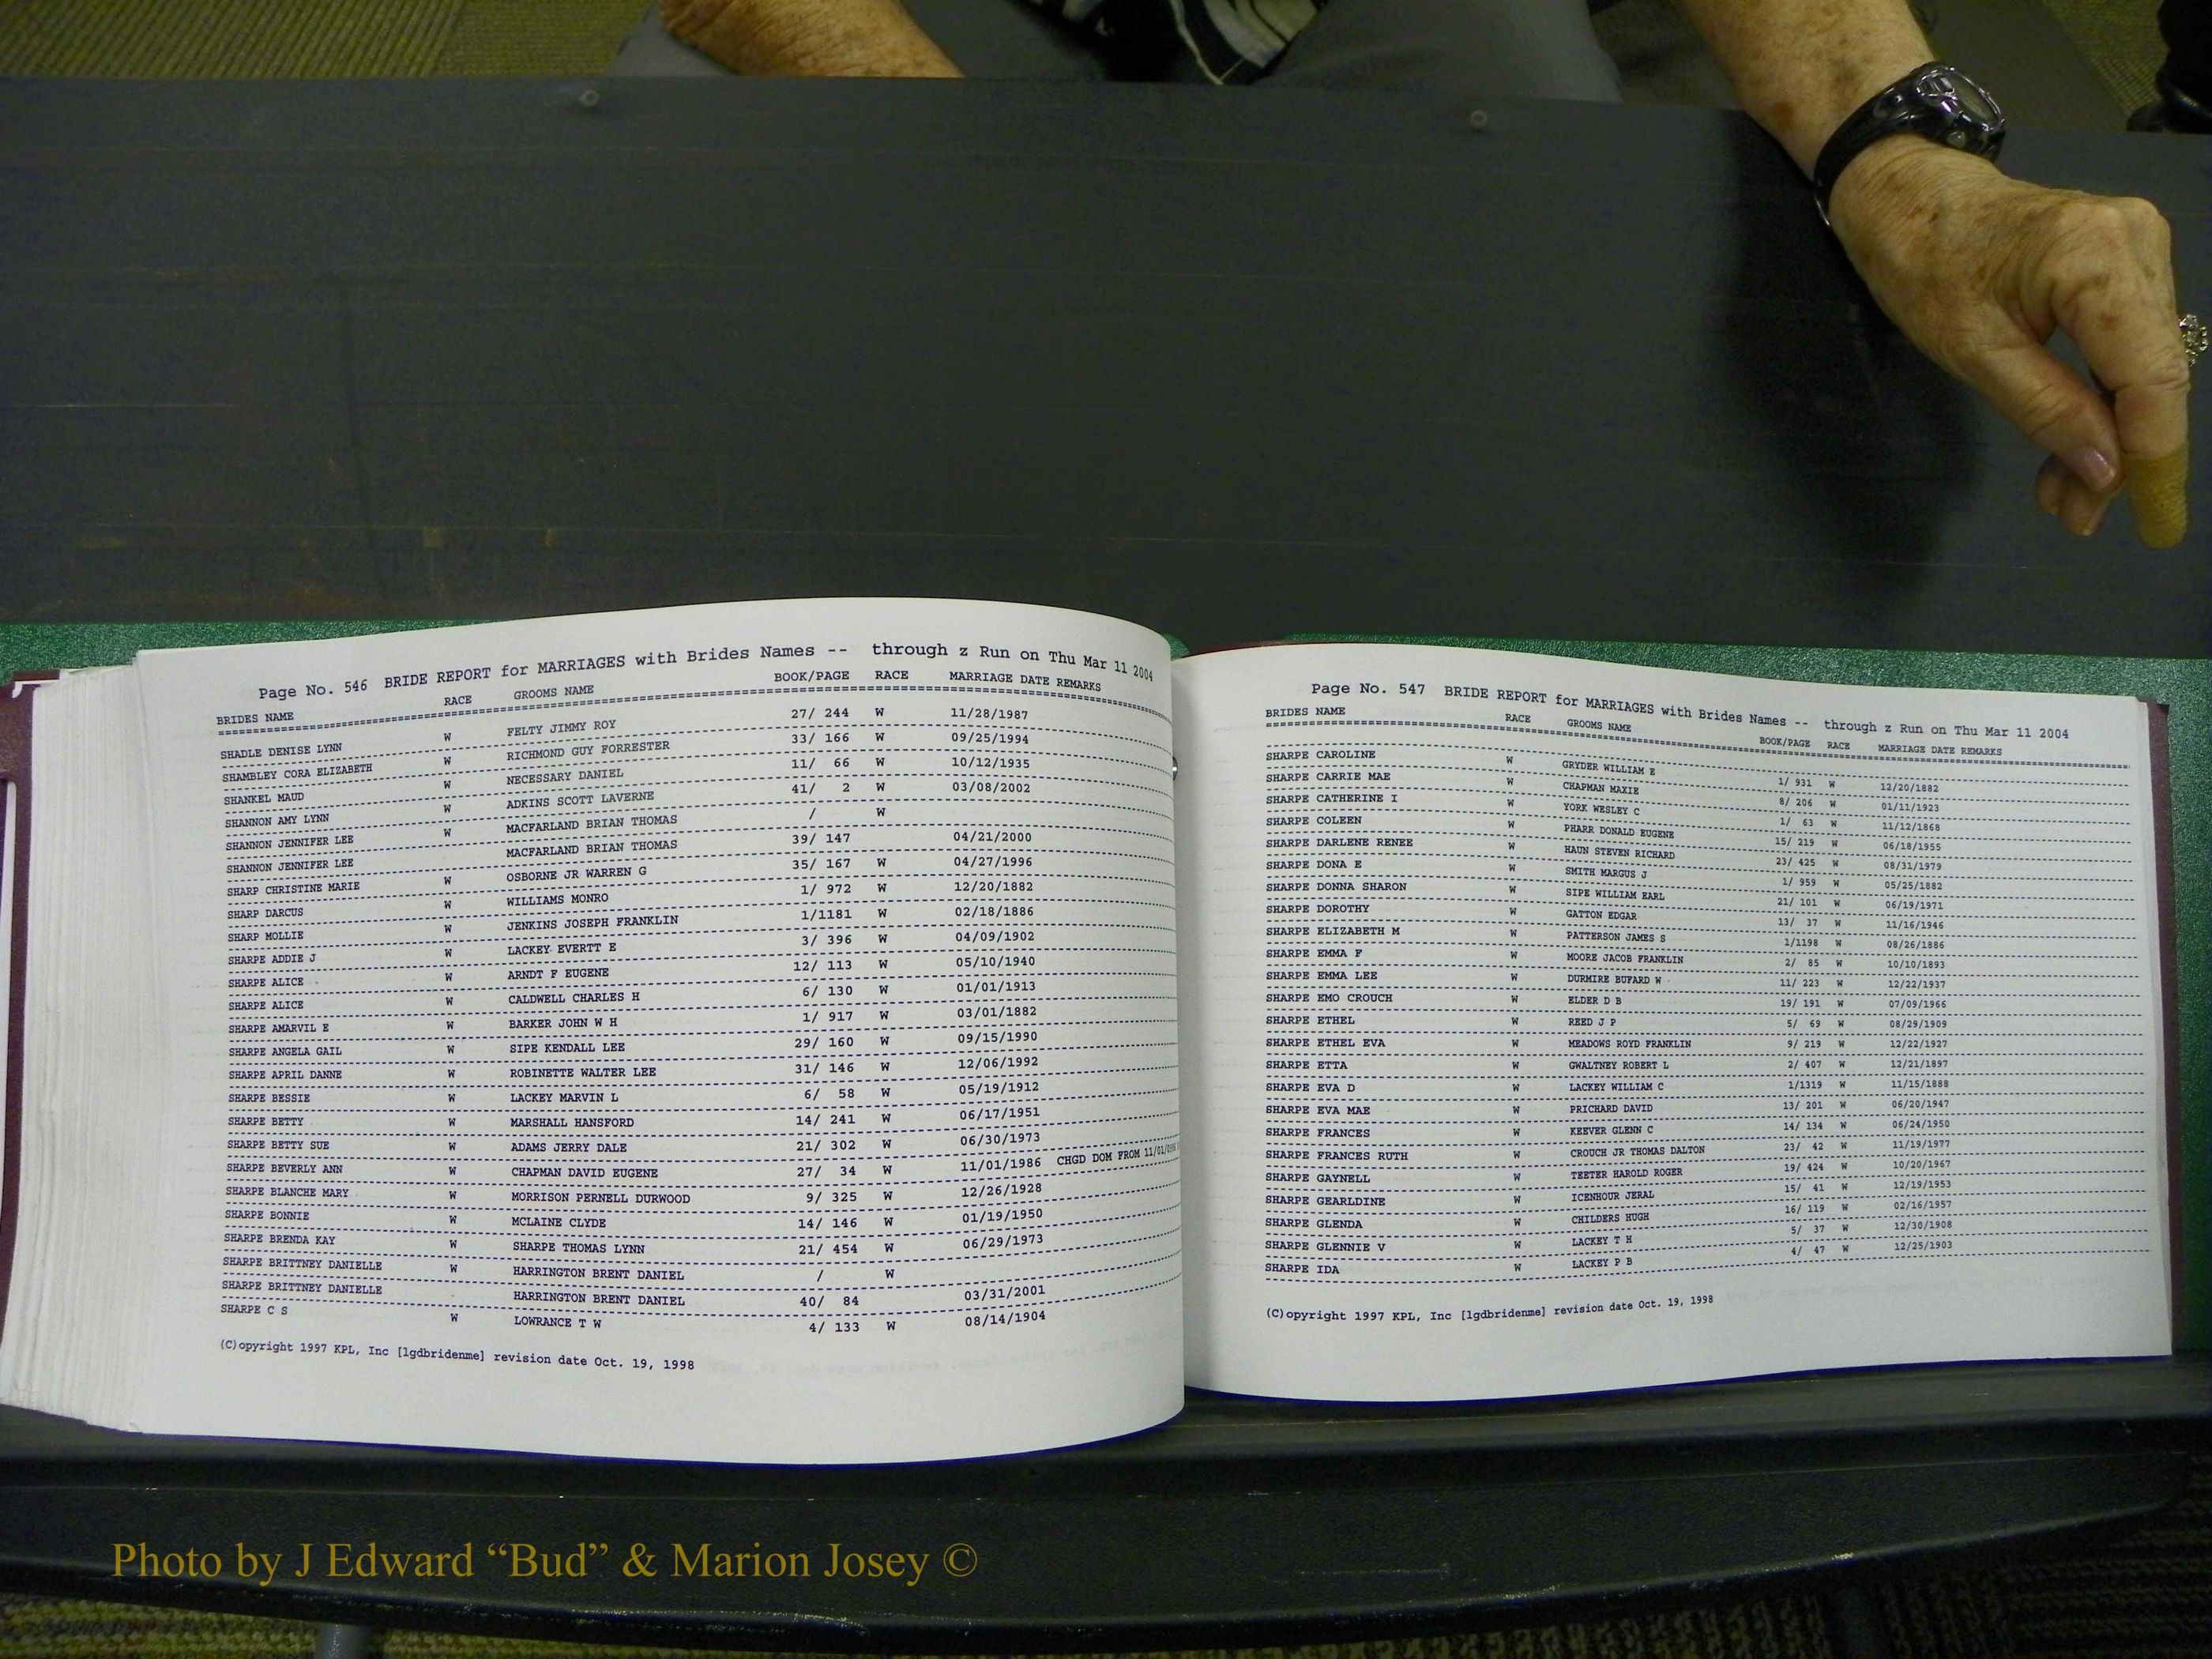 Page No. 546 BRIDE REPORT for MARRIAGES with Brides Names -- through z Run on Thu Mar 11 2004
BRIDES NAME RACE GROOMS NAME BOOK/PAGE RACE MARRIAGE DATE REMARKS
SHADLE DENISE LYNN W FELTY JIMMY ROY 27/ 244 W 11/28/1987
SHAMBLEY CORA ELIZABETH W RICHMOND GUY FORRESTER 33/ 166 W 09/25/1994
SHANKEL MAUD W NECESSARY DANIEL 11/ 66 W 10/12/1935
SHANNON AMY LYNN W ADKINS SCOTT LAVERNE 41/ 2 W 03/08/2002
SHANNON JENNIFER LEE W MACFARLAND BRIAN THOMAS / W
SHANNON JENNIFER LEE MACFARLAND BRIAN THOMAS 39/ 147 04/21/2000
SHARP CHRISTINE MARIE W OSBORNE JR WARREN G 35/ 167 W 04/27/1996
SHARP DARCUS W WILLIAMS MONRO 1/ 972 W 12/20/1882
SHARP MOLLIE W JENKINS JOSEPH FRANKLIN 1/1181 W 02/18/1886
SHARPE ADDIE J W LACKEY EVERTT E 3/ 396 W 04/09/1902
SHARPE ALICE W ARNDT F EUGENE 12/ 113 W 05/10/1940
SHARPE ALICE W CALDWELL CHARLES H 6/ 130 W 01/01/1913
SHARPE AMARVIL E W BARKER JOHN W H 1/ 917 W 03/01/1882
SHARPE ANGELA GAIL W SIPE KENDALL LEE 29/ 160 W 09/15/1990
SHARPE APRIL DANNE W ROBINETTE WALTER LEE 31/ 146 W 12/06/1992
SHARPE BESSIE W LACKEY MARVIN L 6/ 58 W 05/19/1912
SHARPE BETTY W MARSHALL HANSFORD 14/ 241 W 06/17/1951
SHARPE BETTY SUE W ADAMS JERRY DALE 21/ 302 W 06/30/1973
SHARPE BEVERLY ANN W CHAPMAN DAVID EUGENE 27/ 34 W 11/01/1986 CHGD DOM FROM
SHARPE BLANCHE MARY W MORRISON PERNELL DURWOOD 9/ 325 W 12/26/1928
SHARPE BONNIE W MCLAINE CLYDE 14/ 146 W 01/19/1950
SHARPE BRENDA KAY W SHARPE THOMAS LYNN 21/ 454 W 06/29/1973
SHARPE BRITTNEY DANIELLE W HARRINGTON BRENT DANIEL / W
SHARPE BRITTNEY DANIELLE HARRINGTON BRENT DANIEL 40/ 84 03/31/2001
SHARPE C S W LOWRANCE T W 4/ 133 W 08/14/1904
(C)opyright 1997 KPL, Inc [lgdbridenme] revision date Oct. 19, 1998
Page No. 547 BRIDE REPORT for MARRIAGES with Brides Names -- through z Run on Thu Mar 11 2004
BRIDES NAME RACE GROOMS NAME BOOK/PAGE RACE MARRIAGE DATE REMARKS
SHARPE CAROLINE W GRYDER WILLIAM E 1/ 931 W 12/20/1882
SHARPE CARRIE MAE W CHAPMAN MAXIE 8/ 206 W 01/11/1923
SHARPE CATHERINE I W YORK WESLEY C 1/ 63 W 11/12/1868
SHARPE COLEEN W PHARR DONALD EUGENE 15/ 219 W 06/18/1955
SHARPE DARLENE RENEE W HAUN STEVEN RICHARD 23/ 425 W 08/31/1979
SHARPE DONA E W SMITH MARGUS J 1/ 959 W 05/25/1882
SHARPE DONNA SHARON W SIPE WILLIAM EARL 21/ 101 W 06/19/1971
SHARPE DOROTHY W GATTON EDGAR 13/ 37 W 11/16/1946
SHARPE ELIZABETH M W PATTERSON JAMES S 1/1198 W 08/26/1886
SHARPE EMMA F W MOORE JACOB FRANKLIN 2/ 85 W 10/10/1893
SHARPE EMMA LEE W DURMIRE BUFARD W 11/ 223 W 12/22/1937
SHARPE EMO CROUCH W ELDER D B 19/ 191 W 07/09/1966
SHARPE ETHEL W REED J P 5/ 69 W 08/29/1909
SHARPE ETHEL EVA W MEADOWS ROYD FRANKLIN 9/ 219 W 12/22/1927
SHARPE ETTA W GWALTNEY ROBERT L 2/ 407 W 12/21/1897
SHARPE EVA D W LACKEY WILLIAM C 1/1319 W 11/15/1888
SHARPE EVA MAE W PRICHARD DAVID 13/ 201 W 06/20/1947
SHARPE FRANCES W KEEVER GLENN C 14/ 134 W 06/24/1950
SHARPE FRANCES RUTH W CROUCH JR THOMAS DALTON 23/ 42 W 11/19/1977
SHARPE GAYNELL W TEETER HAROLD ROGER 19/ 424 W 10/20/1967
SHARPE GEARLDINE W ICENHOUR JERAL 15/ 41 W 12/19/1953
SHARPE GLENDA W CHILDERS HUGH 16/ 119 W 02/16/1957
SHARPE GLENNIE V W LACKEY T H 5/ 37 W 12/30/1908
SHARPE IDA W LACKEY P B 4/ 47 W 12/25/1903
(C)opyright 1997 KPL, Inc [lgdbridenme] revision date Oct. 19, 1998
Photo by J Edward “Bud” & Marion Josey ©